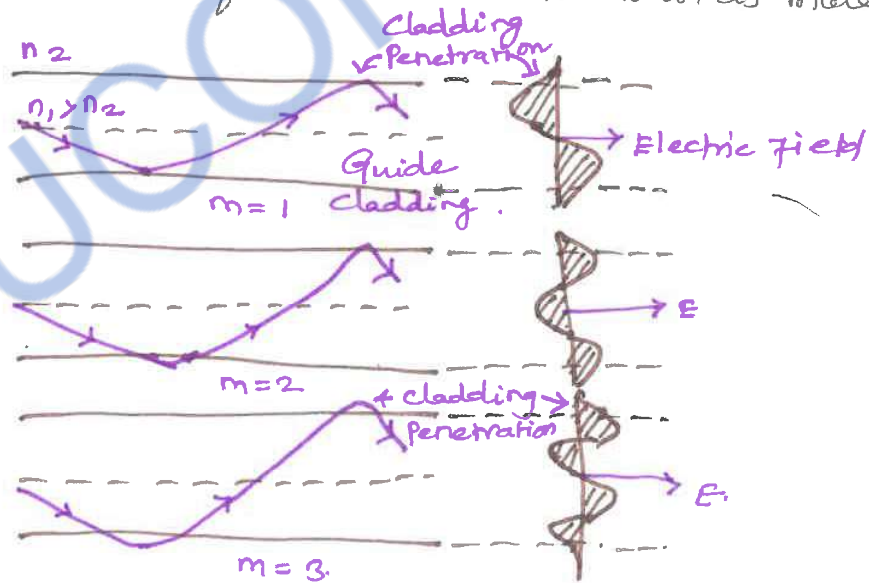 Cladding
n2 Penetration
n1 > n2
Electric Field
Guide
m = 1 Cladding.
E
m = 2 Cladding
Penetration
E.
m = 3.